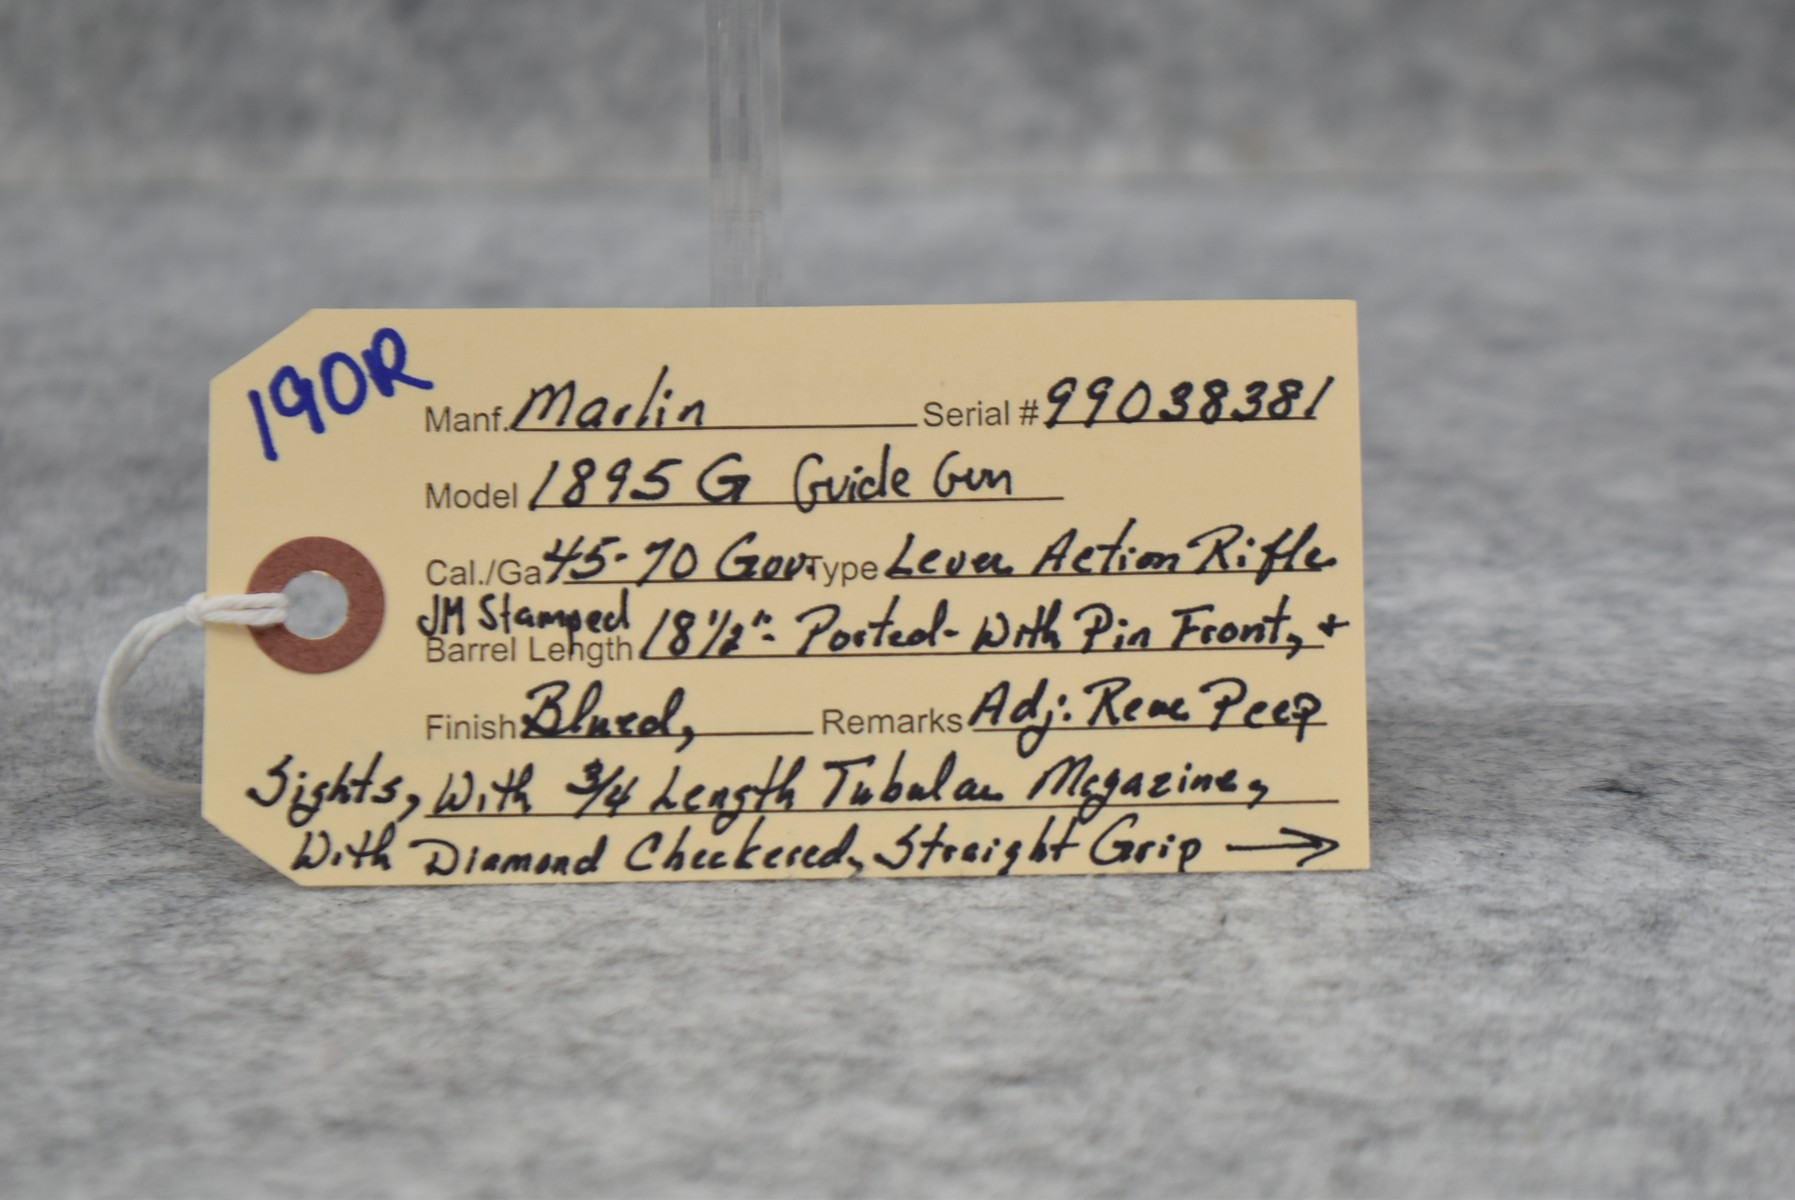 190R
Manf. Marlin Serial # 99038381
Model 1895 G Guide Gun
Cal./Ga 45-70 Gov. Type Lever Action Rifle
JM Stamped
Barrel Length 18 1/2" - Ported - With Pin Front, +
Finish Blued, Remarks Adj. Rear Peep
Sights, With 3/4 Length Tubular Magazine,
With Diamond Checkered, Straight Grip →